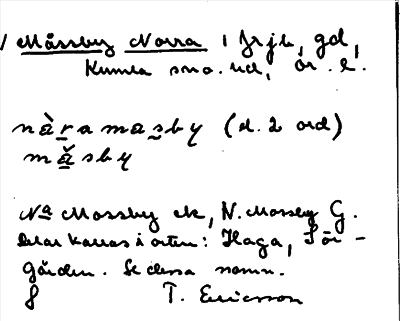 Mässby Norra 1 frjh, gd,
Kumla sn o. hd, Ör. l.
nàra masby (el. 2 ord)
mǎsby
Na Mossby ek, N. Mossby G.
Delar kallas i orten: Haga, Sör-
gården. Se dessa namn.
8 T. Ericsson